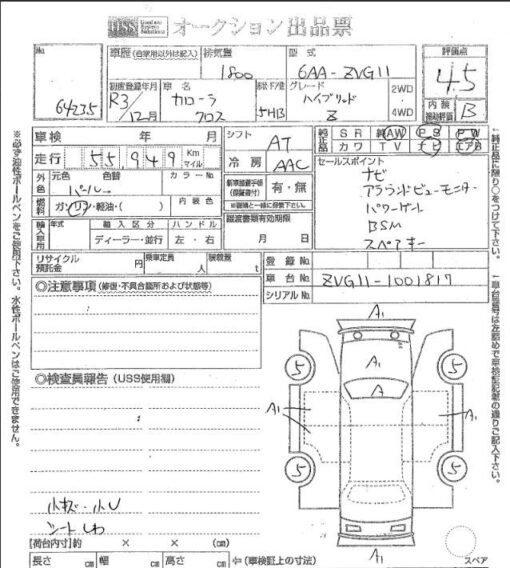 USS オークション出品票
No.
64235
車歴 (自家用以外は記入)
排気量
1800
型式
6AA-ZVG11
評価点
4.5
内装
補助評価
B
初度登録年月
R3/12月
車名
カローラ
クロス
ドア/形
5HB
グレード
ハイブリッド
Z
2WD
4WD
車検 年 月
シフト
AT
純正品
SR 純AW PS PW
カワ TV ナビ エアB
走行 55,949 Km マイル
冷房
AAC
セールスポイント
ナビ
アラウンドビューモニター
パワーゲート
BSM
スペアキー
外色
元色
パール
色替
カラーNo.
燃料
ガソリン・軽油・( )
内装色
新車整備手帳
(保証書付)
有・無
輸入車用
年式
輸入区分
ディーラー・並行
ハンドル
左・右
譲渡書類有効期限
月 日
リサイクル
預託金
円
乗車定員
人
積載量
t
登録No.
車台No.
ZVG11-1001817
シリアルNo.
◎注意事項 (修復・不具合箇所および状態等)
◎検査員報告 (USS使用欄)
小キズ・小U
シートしわ
A1
A1
A
A1
A1
A1
A1
5
5
5
5
スペア
【荷台内寸】約 × × (cm)
長さ cm 幅 cm 高さ cm
⇦(車検証上の寸法)
※必ず油性ボールペンをご使用下さい。水性ボールペンはご使用できません。
↑純正品に限り○をつけて下さい。
↑車台番号は左詰めで車検証記載の通りご記入下さい。